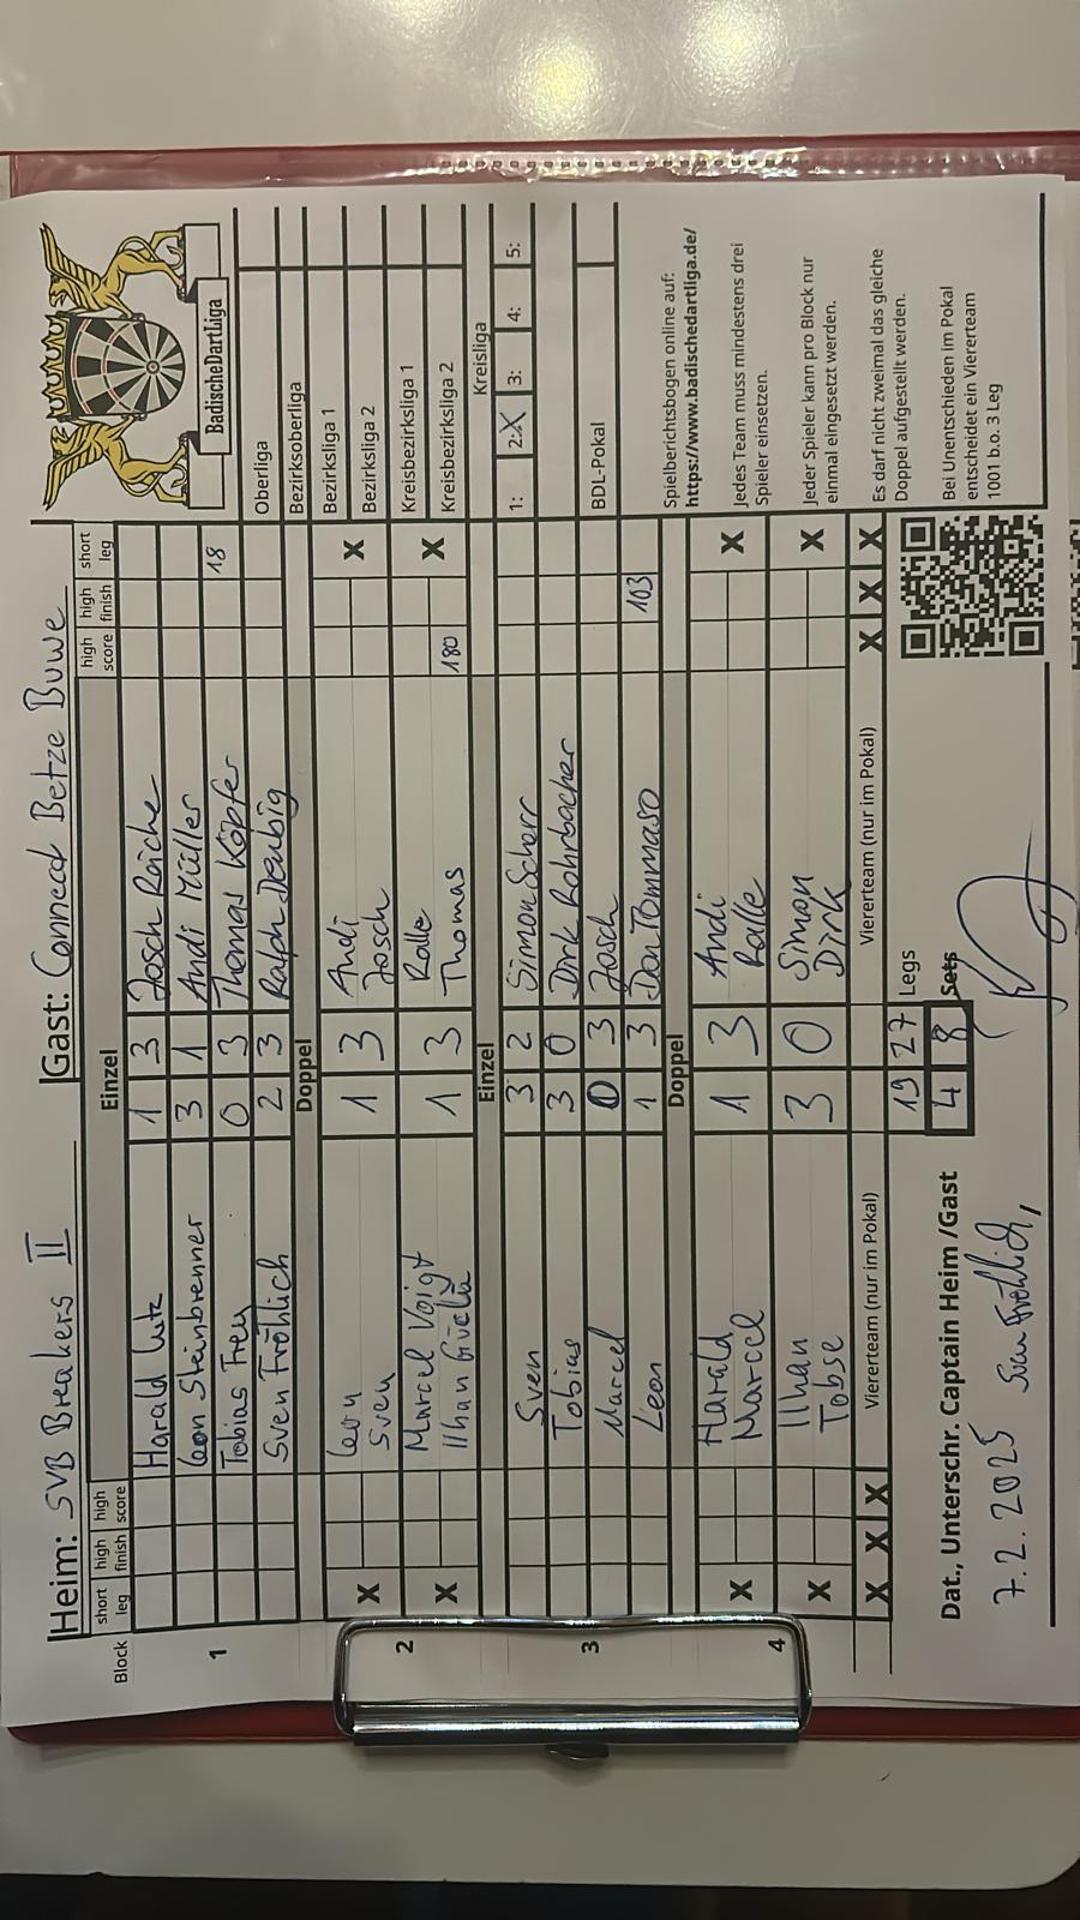 Heim: SVB Breakers II Gast: Connect Betze Buwe
Block short leg high finish high score Einzel high score high finish short leg
BadischeDartLiga
1
Harald Lutz 1 3 Josch Reiche
Leon Steinbrenner 3 1 Andi Müller
Tobias Frey 0 3 Thomas Köpfer 18
Sven Fröhlich 2 3 Ralph Deubig
Doppel
2
X Leon 1 3 Andi X
Sven Josch
X Marcel Voigt 1 3 Ralle X
Ilhan Güclü Thomas 180
Einzel
3
Sven 3 2 Simon Scherr
Tobias 3 0 Dirk Rohrbacher
Marcel 0 3 Josch
Leon 1 3 Don Tommaso 103
Doppel
4
X Harald 1 3 Andi X
Marcel Ralle
X Ilhan 3 0 Simon X
Tobse Dirk
X X X Viererteam (nur im Pokal) Viererteam (nur im Pokal) X X X
19 27 Legs
4 8 Sets
Dat., Unterschr. Captain Heim /Gast
7.2.2025 Sven Fröhlich,
Oberliga
Bezirksoberliga
Bezirksliga 1
Bezirksliga 2
Kreisbezirksliga 1
Kreisbezirksliga 2
Kreisliga
1: 2:X 3: 4: 5:
BDL-Pokal
Spielberichtsbogen online auf:
https://www.badischedartliga.de/
Jedes Team muss mindestens drei
Spieler einsetzen.
Jeder Spieler kann pro Block nur
einmal eingesetzt werden.
Es darf nicht zweimal das gleiche
Doppel aufgestellt werden.
Bei Unentschieden im Pokal
entscheidet ein Viererteam
1001 b.o. 3 Leg